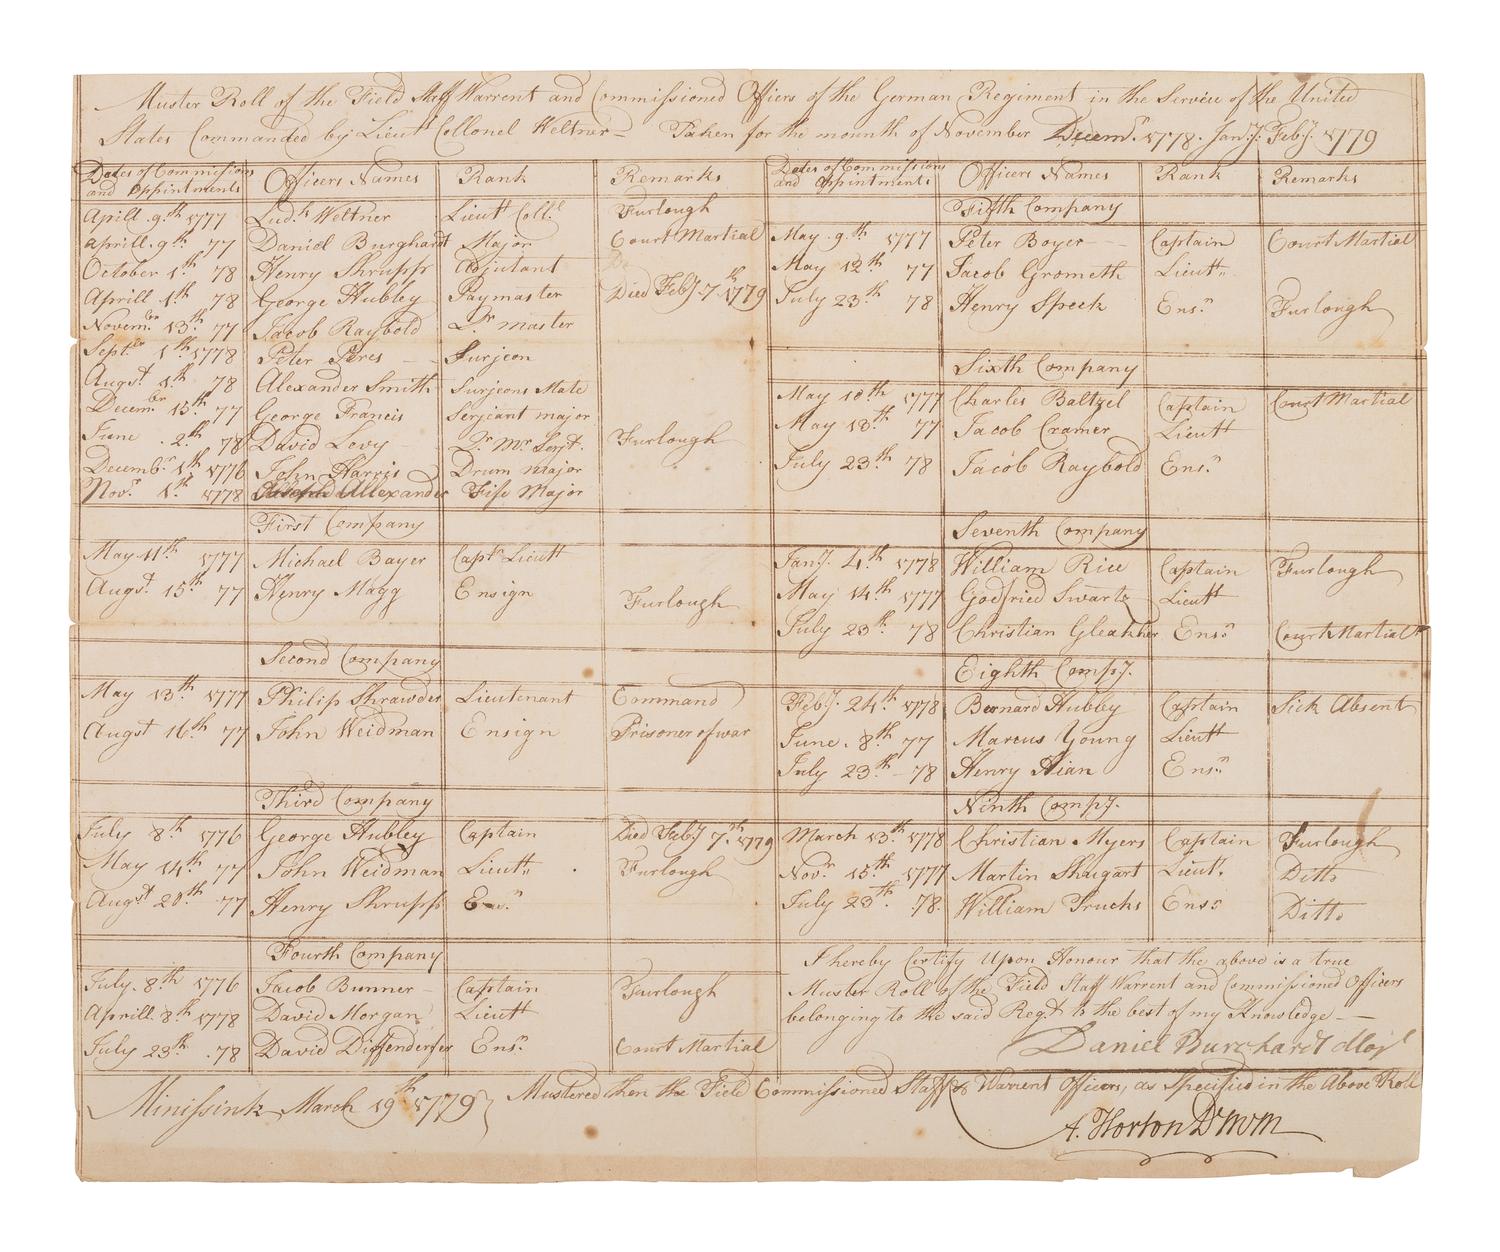 Muster Roll of the Field Staff Warrent and Commissioned Officers of the German Regiment in the Service of the United
States Commanded by Lieut Collonel Weltner – Taken for the mounth of November Decemr. 1778. Jany. Feby. 1779
Dates of Commissions and Appointments Officers Names Rank Remarks
Aprill 9th 1777 Ludk. Weltner Lieutt Coll.l Furlough
Aprill 9th 77 Daniel Burghardt Major Court Martial
October 1th 78 Henry Shrupp Adjutant Do
Aprill 1th 78 George Hubley Paymaster Died Feby. 7th 1779
Novembr 13th 77 Jacob Raybold Qr. master
Septbr 1th 1778 Peter Peres Surjeon
Augst 1th 78 Alexander Smith Surjeons Mate
Decembr 15th 77 George Francis Serjeant major
June 2th 78 David Levy Qr. Mr. Serjt. Furlough
Decembr 1th 1776 John Harris Drum Major
Novr. 1th 1778 Allexander Fife Major
First Company
May 11th 1777 Michael Bayer Captn Lieutt
Augst 15th 77 Henry Hagg Ensign Furlough
Second Company
May 13th 1777 Philip Shrawder Lieutenant Command
Augst 16th 77 John Weidman Ensign Prisoner of war
Third Company
July 8th 1776 George Hubley Captain Died Feby 7th 1779
May 14th 77 John Weidman Lieutt,, Furlough
Augst 20th 77 Henry Shrupp Ens.n
Fourth Company
July 8th 1776 Jacob Bunner – Captain Furlough
Aprill 8th 1778 David Morgan Lieutt
July 23th 78 David Diffenderfer Ens.n Court Martial
Dates of Commissions and Appointments Officers Names Rank Remarks
Fifth Company
May 9th 1777 Peter Boyer Captain Court Martial
May 12th 77 Jacob Grometh Lieutt,,
July 23th 78 Henry Speck Ens.n Furlough
Sixth Company
May 10th 1777 Charles Baltzel Captain Court Martial
May 13th 77 Jacob Cramer Lieutt
July 23th 78 Jacob Raybold Ens.n
Seventh Company
Jany. 4th 1778 William Rice Captain Furlough
May 14th 1777 Godfried Swartz Lieutt
July 23th 78 Christian Gleakher Ens.n Court Martial
Eighth Compy.
Feby. 24th 1778 Bernard Hubley Captain Sick Absent
June 8th 77 Marcus Young Lieutt
July 23th – 78 Henry Hian Ens.n
Ninth Compy.
March 13th 1778 Christian Myers Captain Furlough
Novr 15th 1777 Martin Shugart Lieut. Ditto
July 23th 78. William Truchs Ens.n Ditto
I hereby Certify Upon Honour that the above is a true
Muster Roll of the Field Staff Warrent and Commissioned Officers
belonging to the said Regt. to the best of my Knowledge —
Daniel Burchardt Maj
Minissink March 19th 1779} Mustered then the Field Commissioned Staff & Warrent Officers, as Specified in the Above Roll
A. Horton D M M